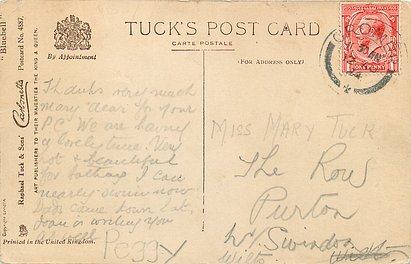 TUCK'S POST CARD
CARTE POSTALE
(FOR ADDRESS ONLY)
By Appointment
"Bluebell"
Postcard No. 4887.
Raphael Tuck & Sons'
ART PUBLISHERS TO THEIR MAJESTIES THE KING & QUEEN.
Printed in the United Kingdom.
Thanks very much
Mary dear for your
P.C. We are having
a lovely time. Very
hot & beautiful
for bathing I can
nearly swim now
came down Sat.
Joan is writing you
Peggy
Miss Mary Tuck
The Row
Purton
Nr Swindon
Wilts